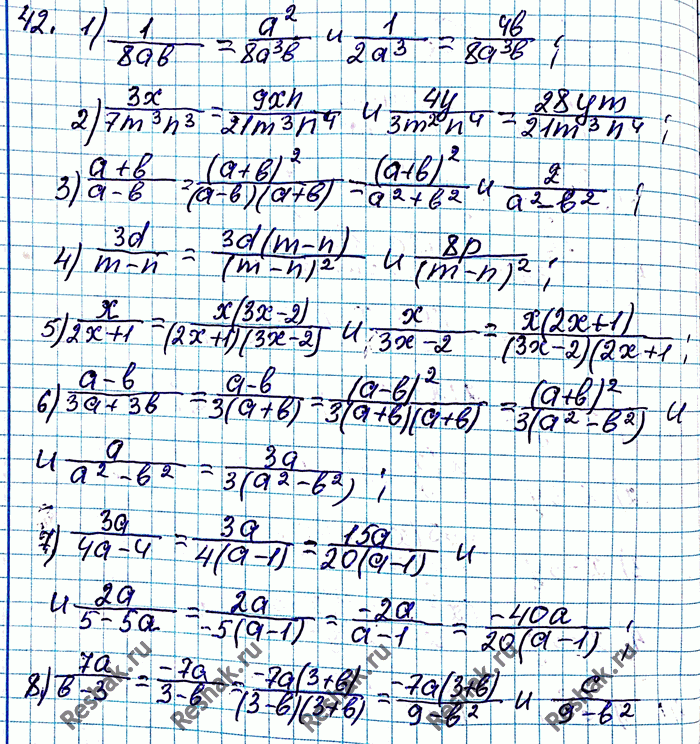 42. 1) 1/(8aв) = a²/(8a³в) и 1/(2a³) = 4в/(8a³в) ;
2) 3x/(7m³n³) = 9xn/(21m³n⁴) и 4y/(3m²n⁴) = 28ym/(21m³n⁴) ;
3) (a+в)/(a-в) = (a+в)²/((a-в)(a+в)) = (a+в)²/(a²+в²) и 2/(a²-в²) ;
4) 3d/(m-n) = 3d(m-n)/(m-n)² и 8p/(m-n)² ;
5) x/(2x+1) = x(3x-2)/((2x+1)(3x-2)) и x/(3x-2) = x(2x+1)/((3x-2)(2x+1 ;
6) (a-в)/(3a+3в) = (a-в)/(3(a+в)) = (a-в)²/(3(a+в)(a+в)) = (a+в)²/(3(a²-в²)) и
и a/(a²-в²) = 3a/(3(a²-в²)) ;
7) 3a/(4a-4) = 3a/(4(a-1)) = 15a/(20(a-1)) и
и 2a/(5-5a) = 2a/(-5(a-1)) = -2a/(a-1) = -40a/(20(a-1)) ;
8) 7a/(в-3) = -7a/(3-в) = -7a(3+в)/((3-в)(3+в)) = -7a(3+в)/(9-в²) и c/(9-в²) .
Reshak.ru
Reshak.ru
Reshak.ru
Reshak.ru
Reshak.ru